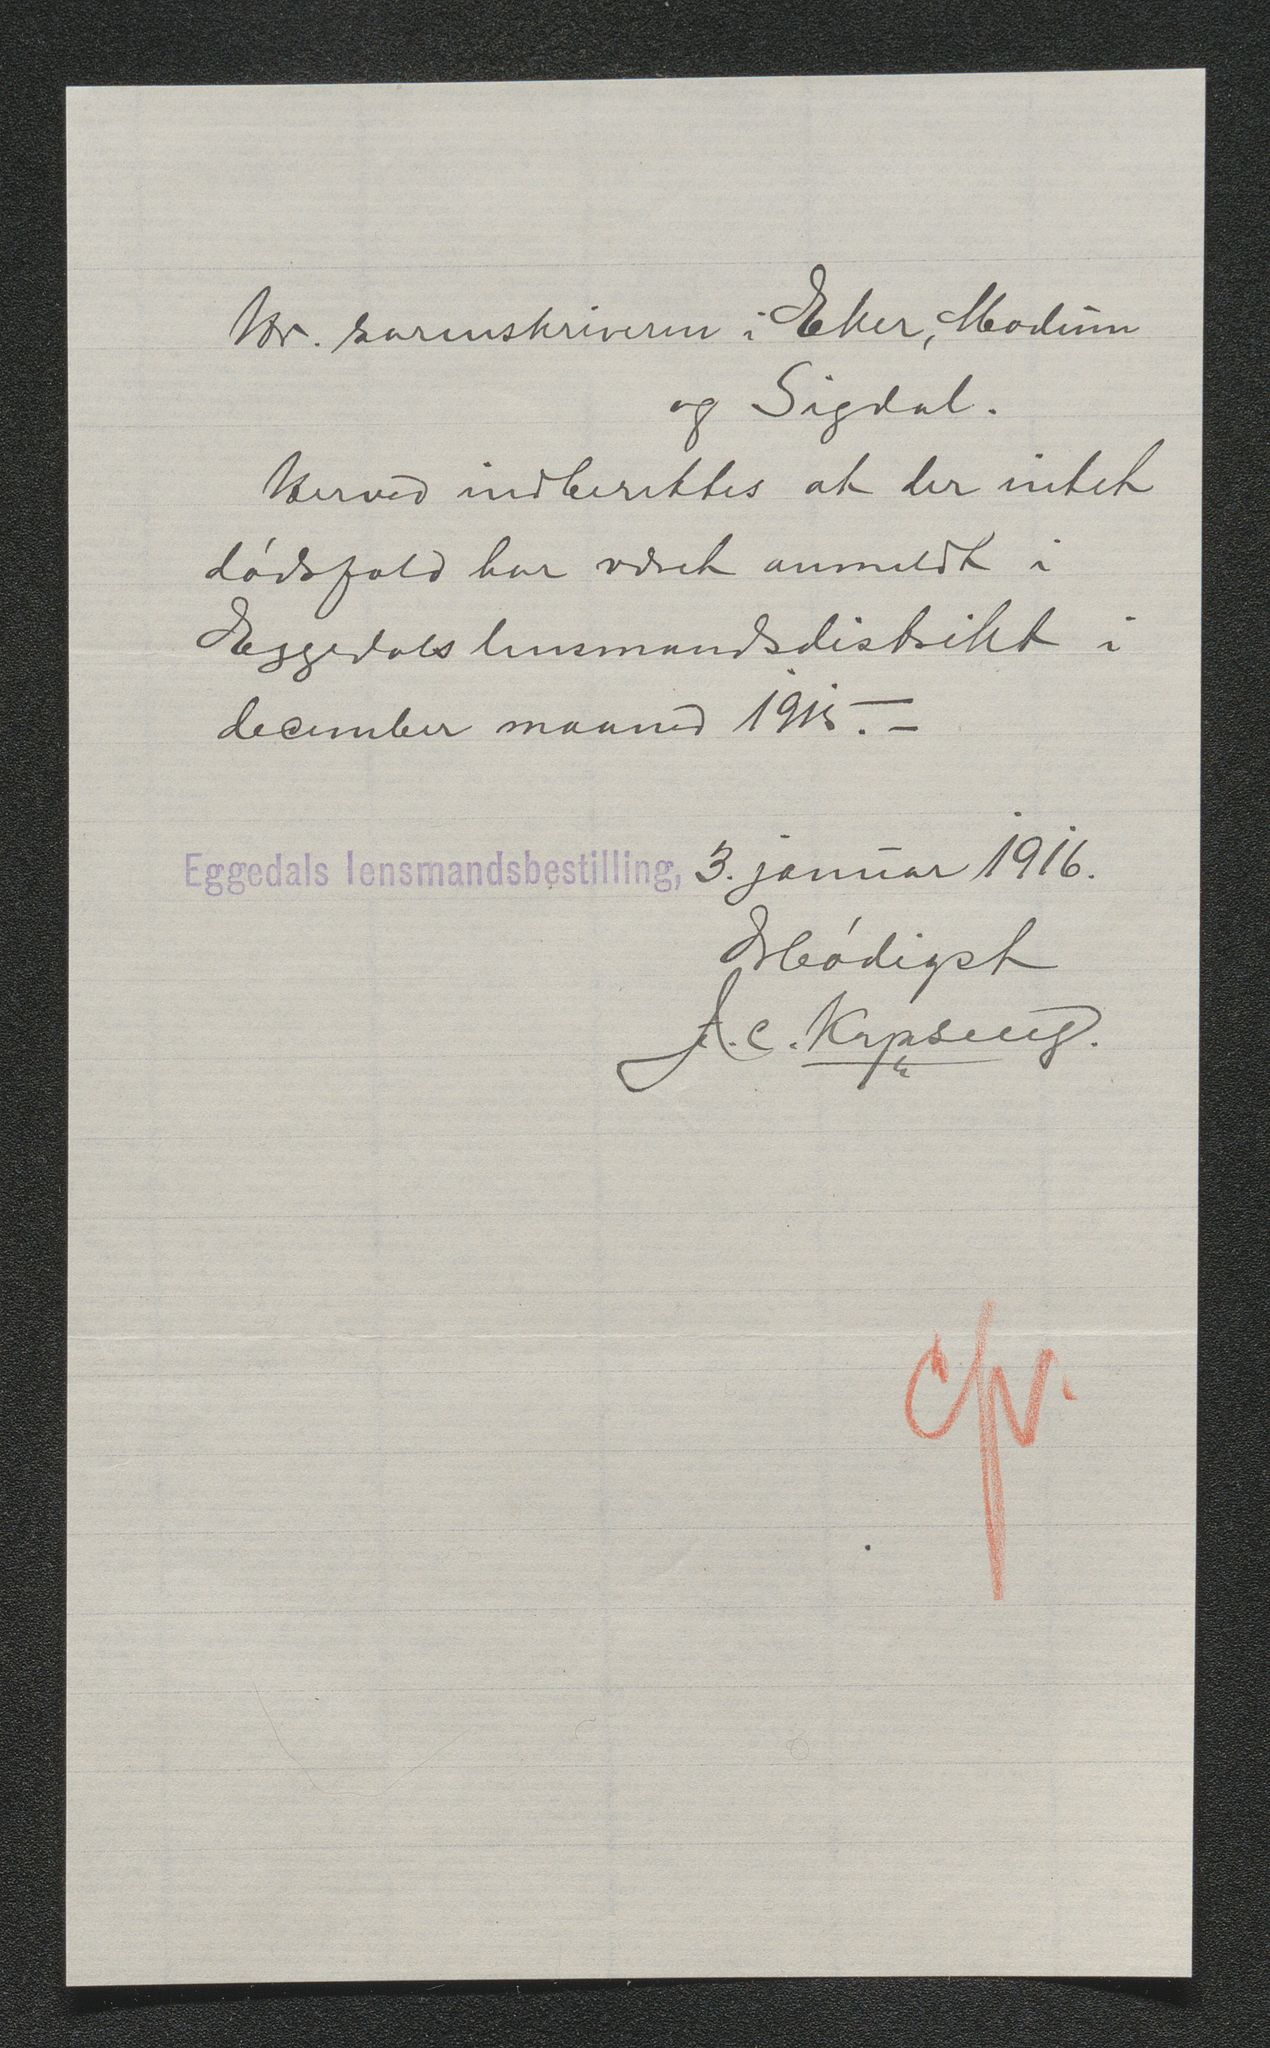 Hr. sorenskriveren i Eker, Modum
og Sigdal.
Herved indberettes at der intet
dødsfald har været anmeldt i
Eggedals lensmandsdistrikt i
december maaned 1915. –
Eggedals lensmandsbestilling, 3. januar 1916.
Ærbødigst
A. C. Kopseng.